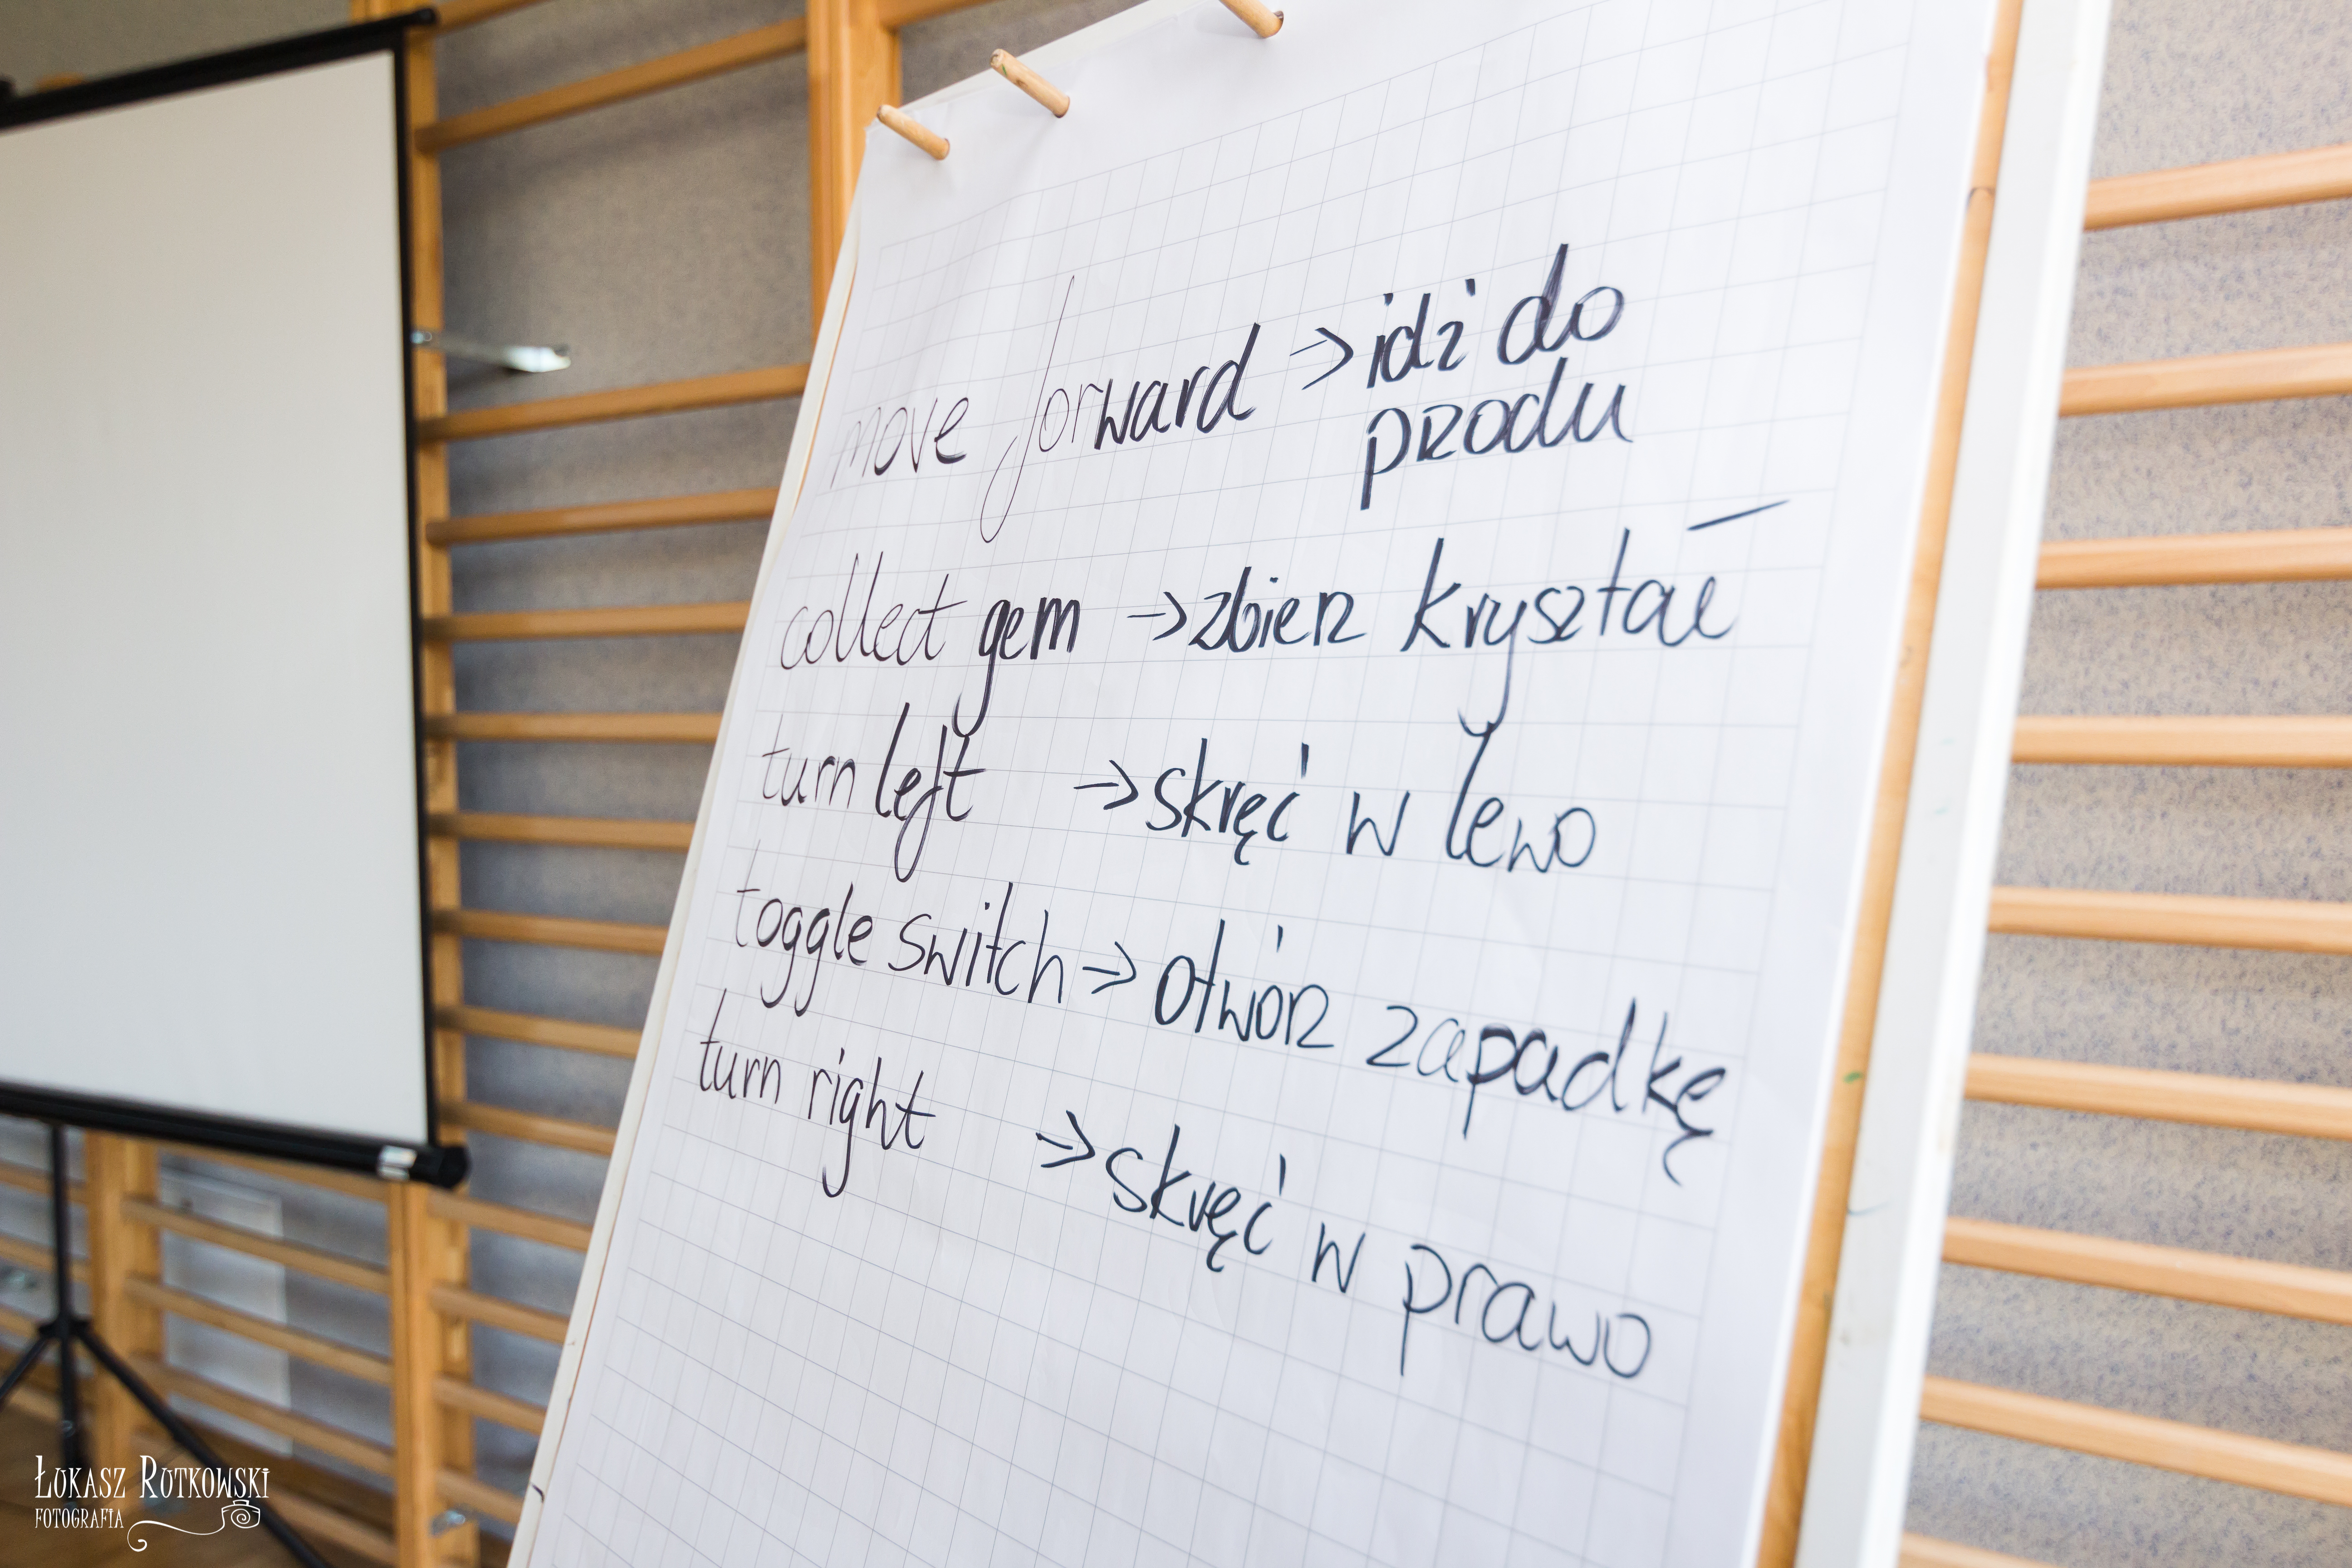 move forward → idź do
przodu
collect gem → zbierz kryształ
turn left → skręć w lewo
toggle switch → otwórz zapadkę
turn right → skręć w prawo
ŁUKASZ RUTKOWSKI
FOTOGRAFIA